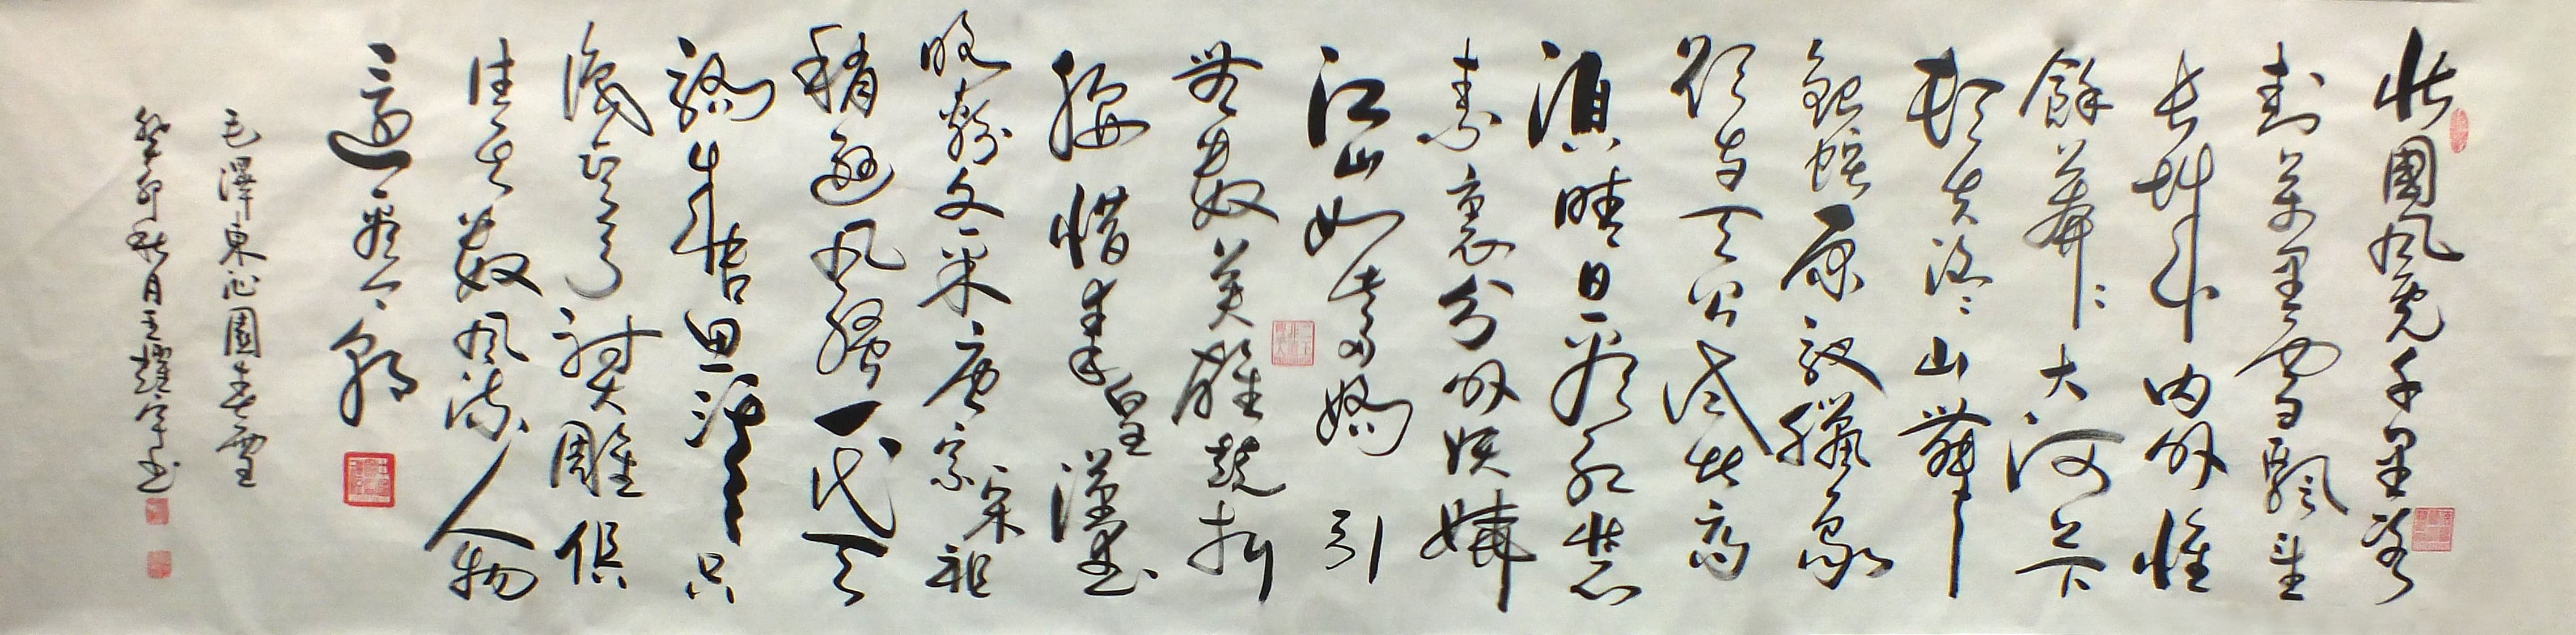 北國風光千里冰
封萬里雪飄望
長城內外惟
餘莽〻大河上下
頓失滔〻山舞
銀蛇原馳蠟象
欲与天公試比高
須晴日看紅装
素裹分外妖嬈
江山如此多嬌引
無数英雄競折
腰惜秦皇漢武
略輸文采唐宗宋祖
稍遜風騷一代天
驕成吉思汗只
識彎弓射大雕俱
往矣数風流人物
還看今朝
毛澤東沁園春雪
癸卯秋月王耀宇书